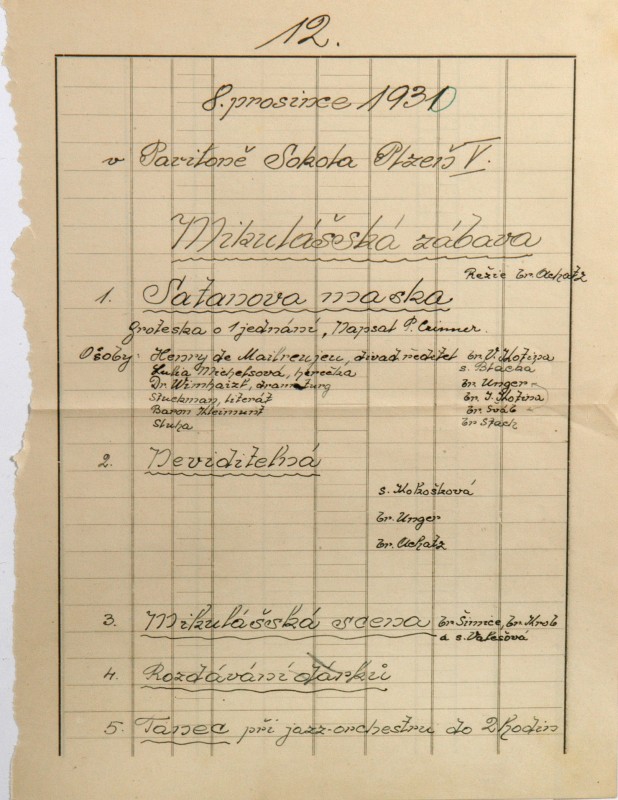 12.
8. prosince 1931
v Paviloně Sokola Plzeň V.
Mikulášská zábava
Režie br. Achatz
1. Satanova maska
Groteska o 1 jednání, Napsal P.
Osoby: Henry de divad. ředitel br. V. Kotina
Lulia Michelsová, herečka s. Blachá
Dr. Wimhaizl, dramaturg br. Unger
Stuckman, literát br. J. Kotina
Baron Kleimunt br. Šváb
Sluha br. Stach
2. Neviditelná
s. Kokošková
br. Unger
br. Achatz
3. Mikulášská scena br. Šimice, br. Krob
a s. Valešová
4. Rozdávání dárků
5. Tanec při jazz-orchestru do 2 hodin